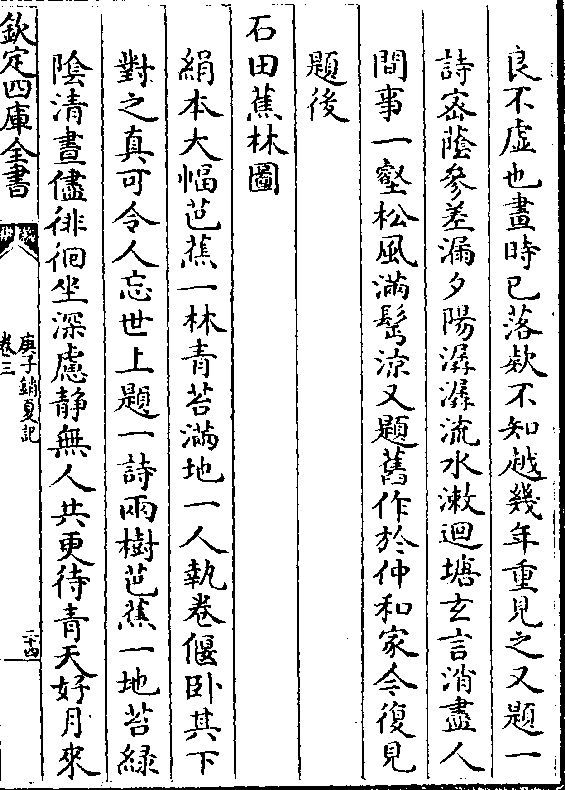 良不虛也畫時已落欵不知越幾年重見之又題一
詩密蔭參差漏夕陽潺潺流水漱迴塘玄言消盡人
間事一壑松風滿髩涼又題舊作於仲和家今復見
題後
石田蕉林圖
絹本大幅芭蕉一林青苔滿地一人執卷偃卧其下
對之真可令人忘世上題一詩兩樹芭蕉一地苔緑
隂清晝儘徘徊坐深慮静無人共更待青天好月來
欽定四庫全書
庚子銷夏記
卷三
二十四